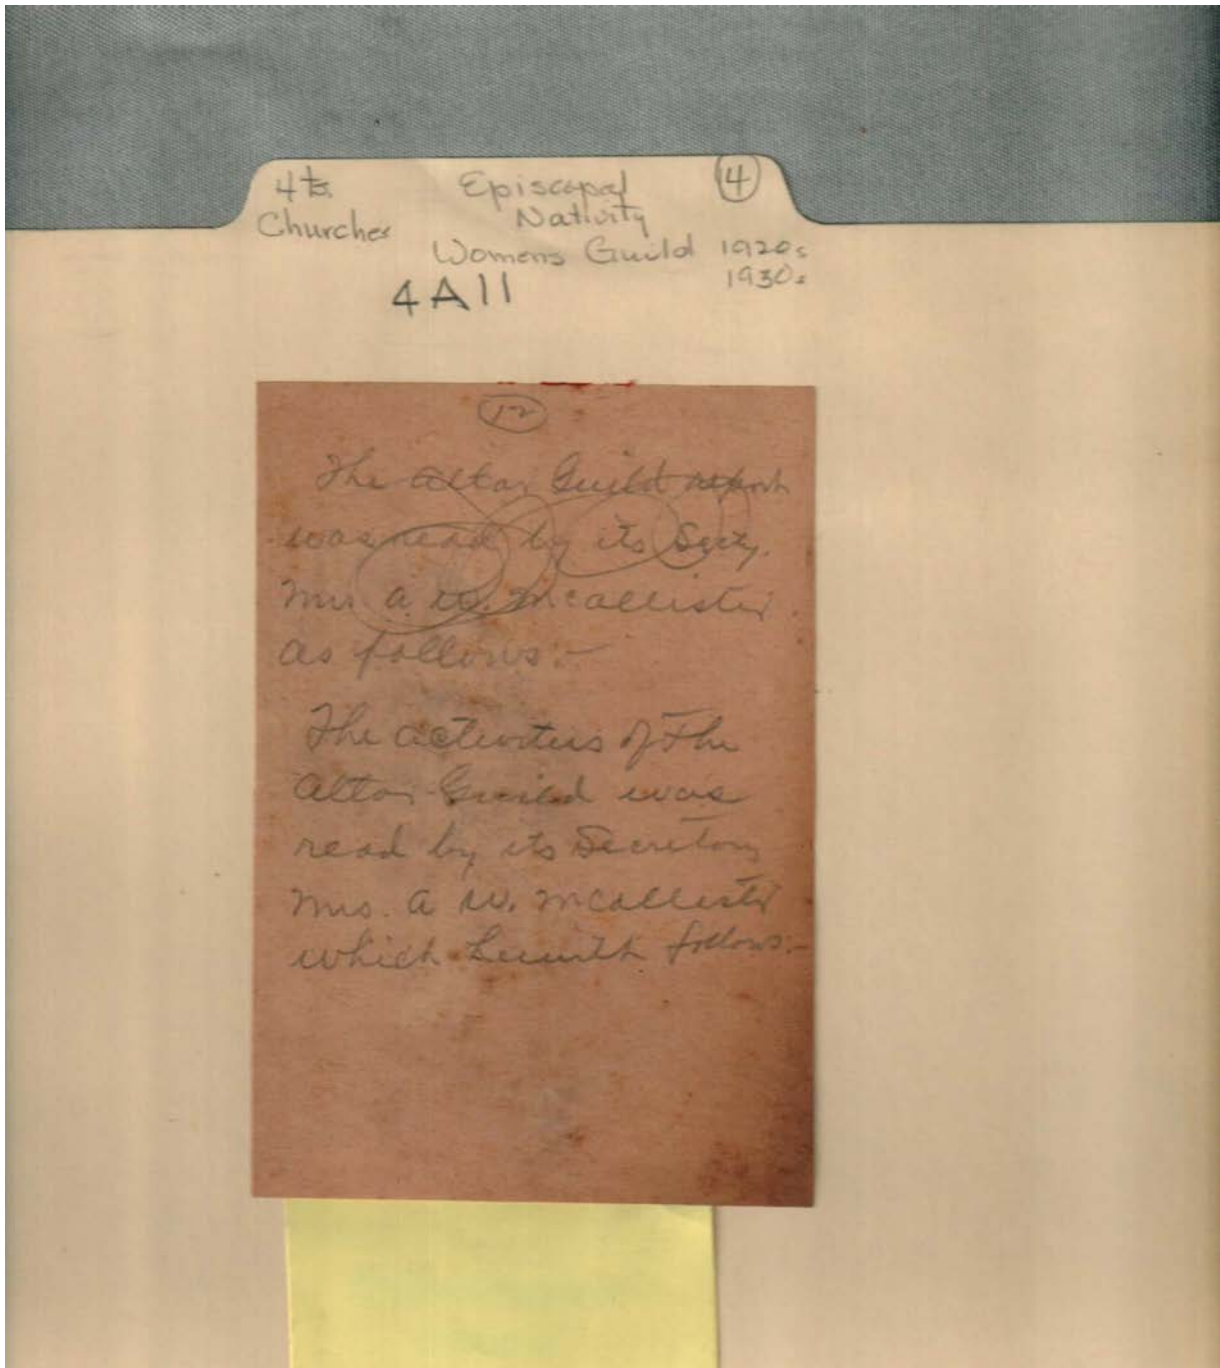 4ts. Episcopal ④
Churches Nativity
Womens Guild 1920s
1930s
4A11
12
The Altar Guild report
was read by its Secty.
Mrs A. W. McAllister
as follows:-
The activities of The
Altar Guild was
read by its Secretary
Mrs. A W. McAllister
which herewith follows:-